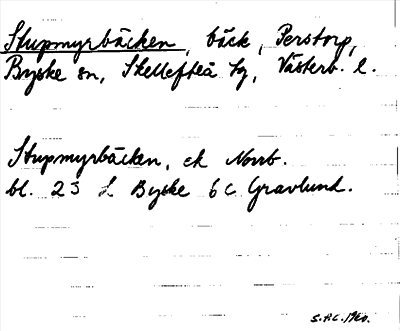 Stupmyrbäcken, bäck, Perstorp,
Byske sn, Skellefteå tg, Västerb. l.
Stupmyrbäcken, ek Norrb.
bl. 23 L Byske 6 C Gravlund.
1960.